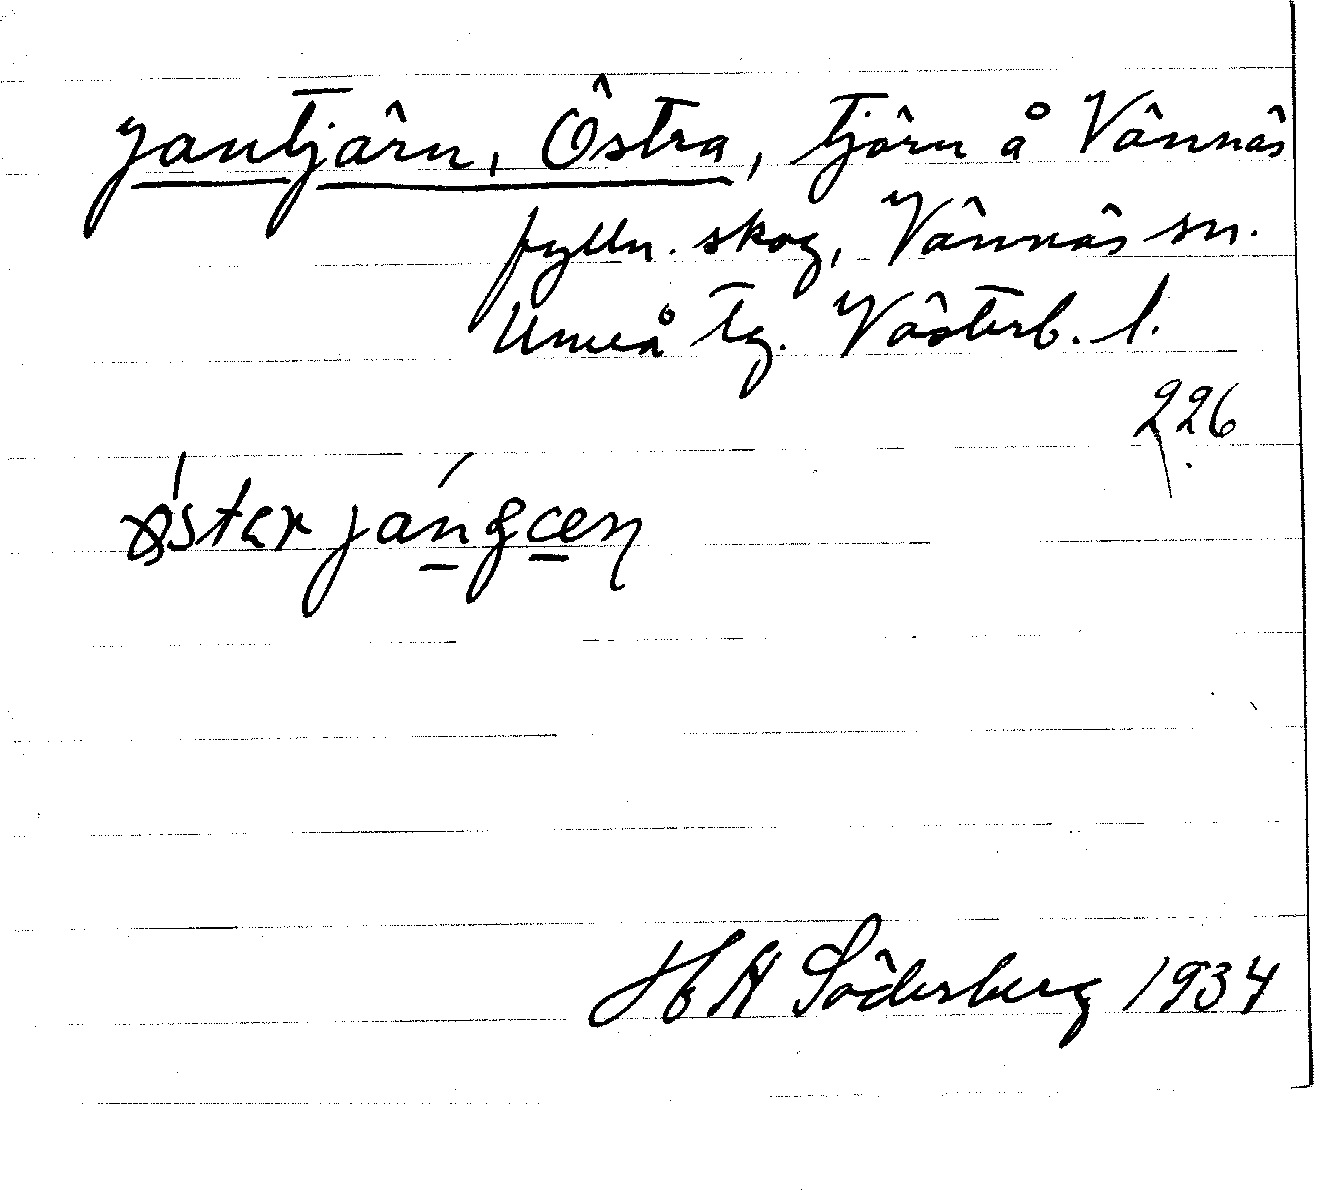 Jantjärn, Östra, tjärn å Vännäs
fylln. skog, Vännäs sn.
Umeå tg. Västerb. l.
226
H N Söderberg 1934